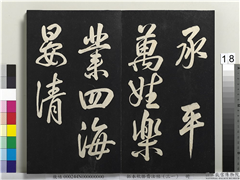 承平
萬姓樂
業四海
晏清
18